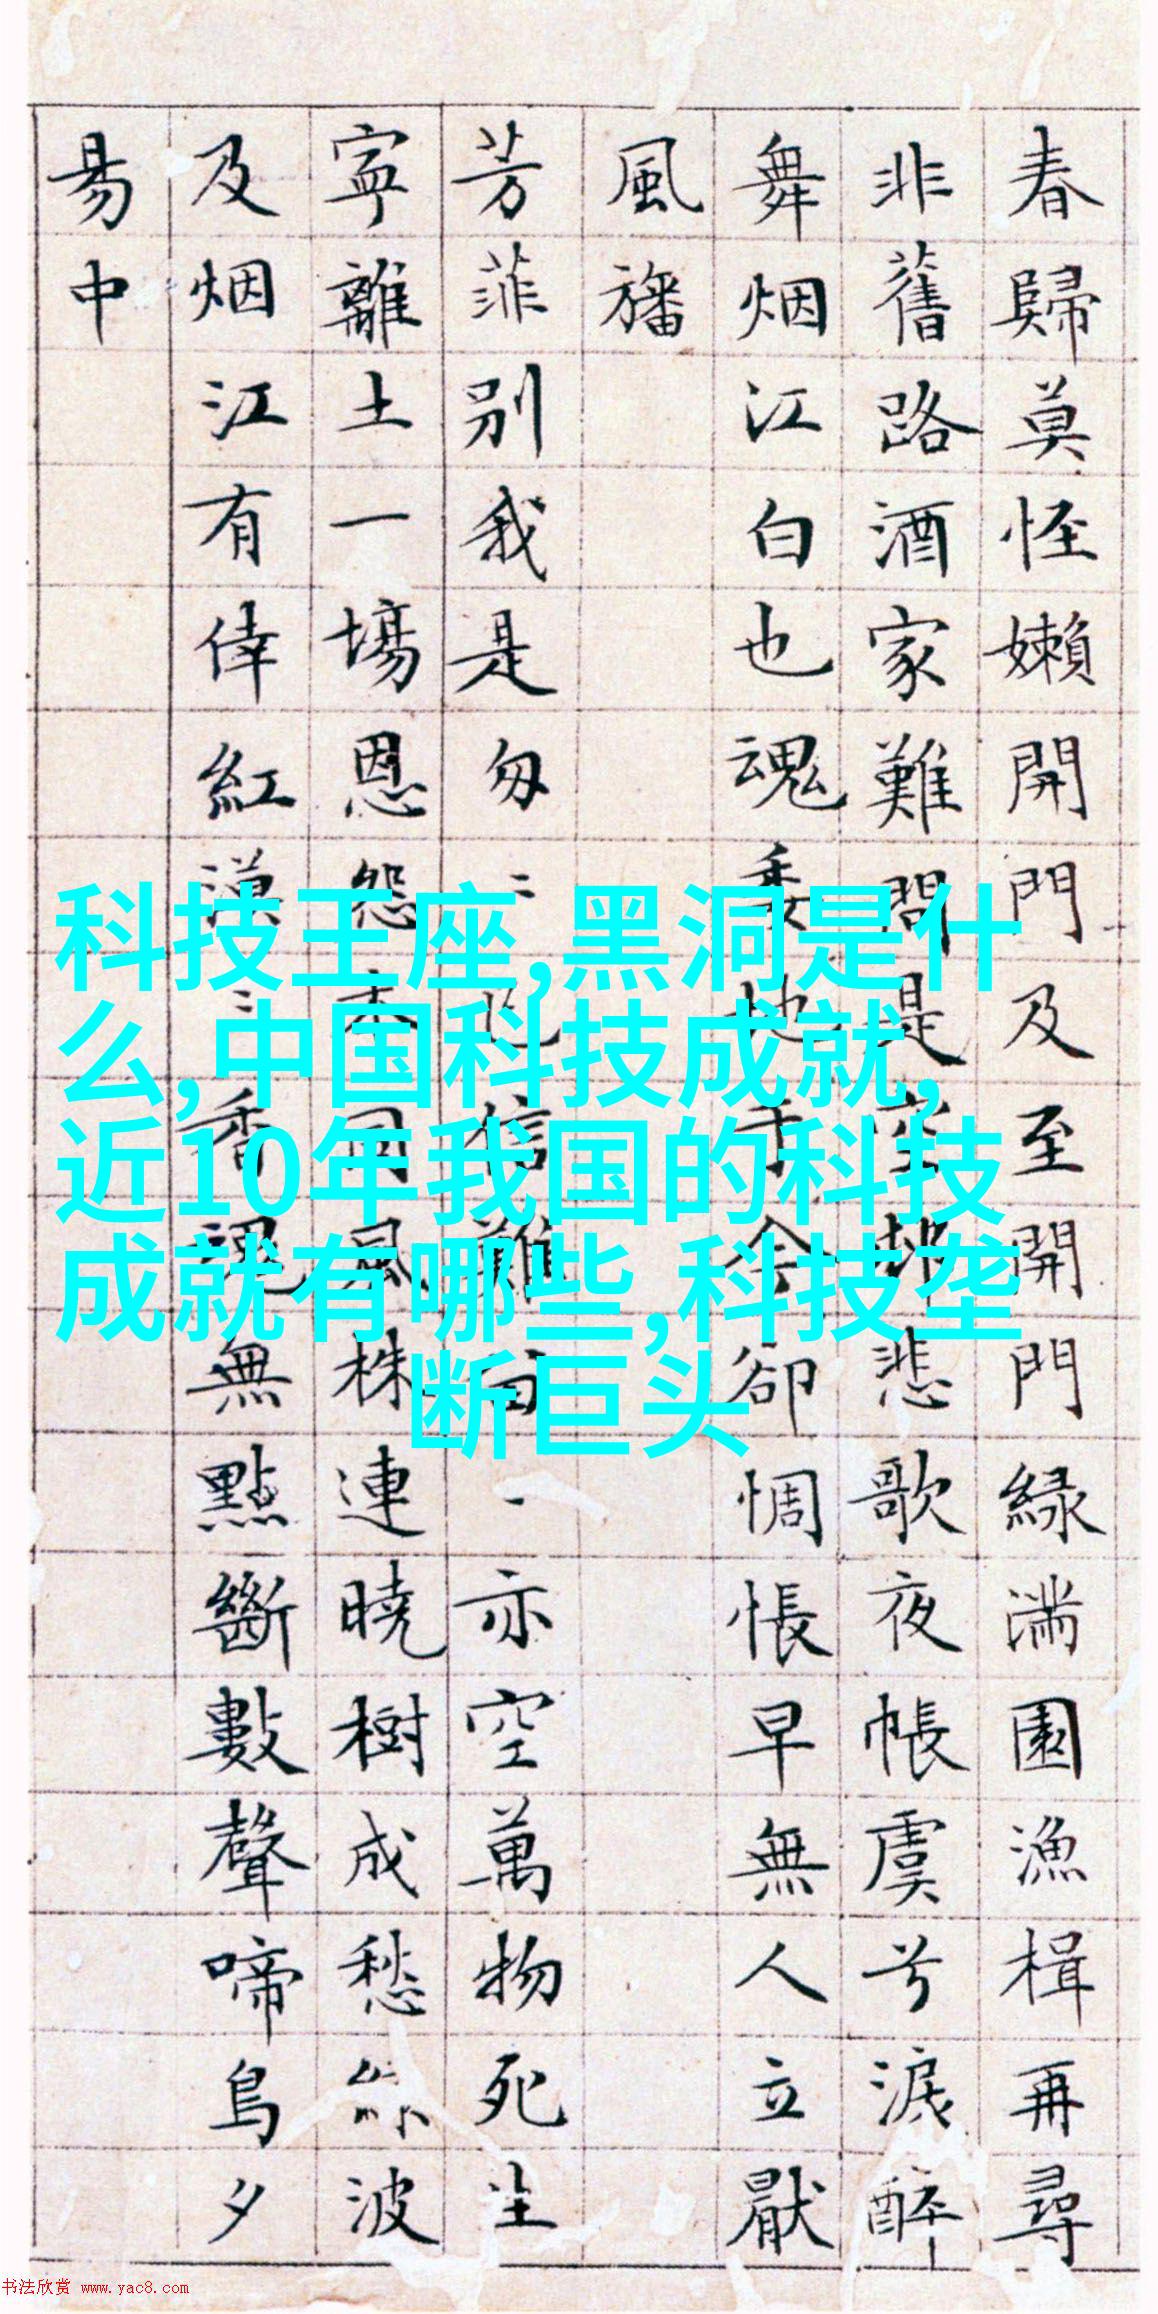 春歸莫怪嬾開門及至開門緑滿園漁楫再尋
非舊路酒家難問是空邨悲歌夜帳虞兮淚醉
舞烟江白也魂委地于今卻惆悵早無人立厭
風旛
芳菲別我是匆〻已信難留〻亦空萬物死生
寧離土一塲恩怨本同風株連曉樹成愁綠波
及烟江有倖紅漠〻香魂無點斷數聲啼鳥夕
易中
科技王座,黑洞是什
么,中国科技成就,
近10年我国的科技
成就有哪些,科技垄
断巨头
书法欣赏 www.yac8.com